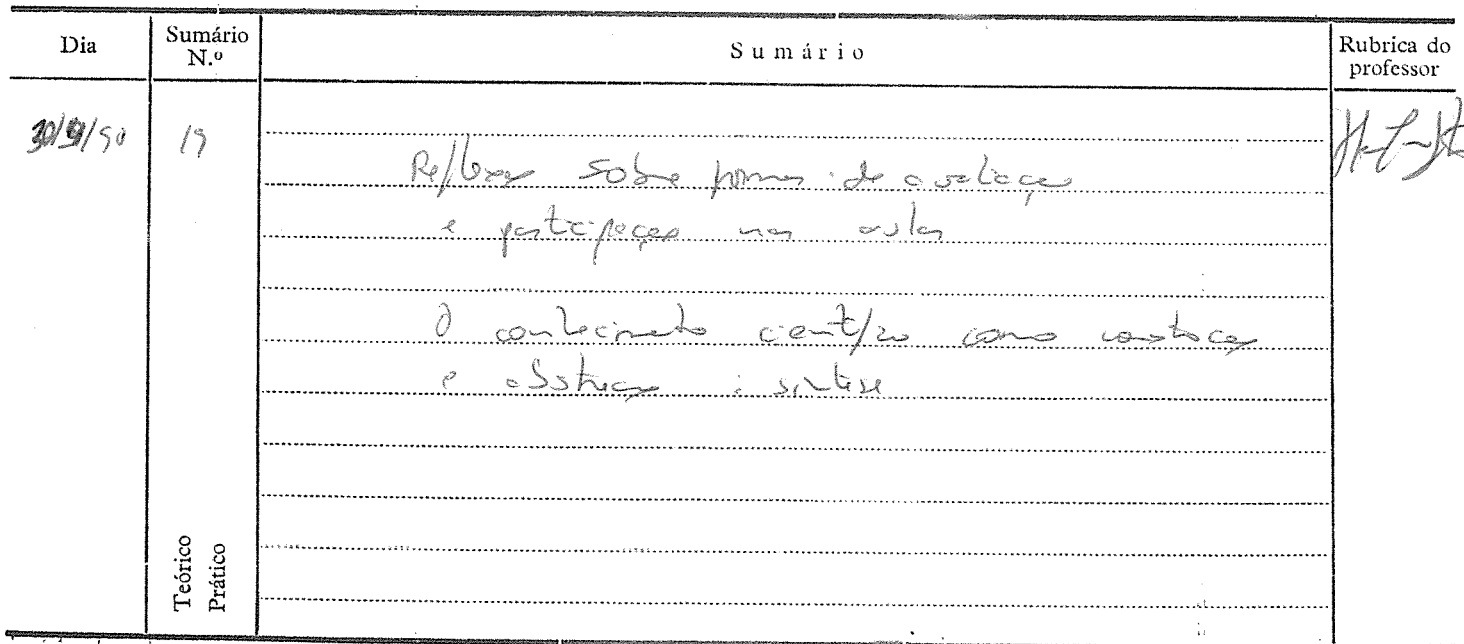 Dia
Sumário N.º
Sumário
Rubrica do professor
19
Reflexão sobre formas de avaliação
e participação nas aulas
O conhecimento científico como construção
e abstracção : síntese
Teórico
Prático